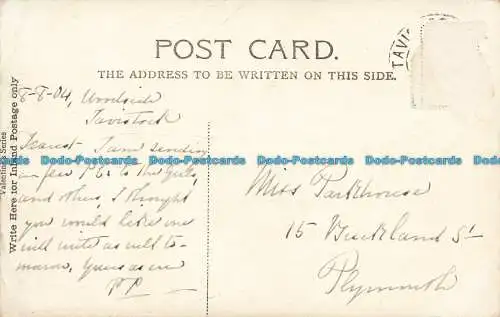 POST CARD.
THE ADDRESS TO BE WRITTEN ON THIS SIDE.
TAVI
Valentine's Series
Write Here for Inland Postage only
8-8-04, Woodside
Tavistock
Dearest - I am sending
a few P.Cs to the Girls,
and others, I thought
you would like one
will write as well to-
morrow, Yours as ever
P.P.
Miss Parkhouse
15 Buckland St
Plymouth
Dodo-Postcards Dodo-Postcards Dodo-Postcards Dodo-Postcards Dodo-Postcards